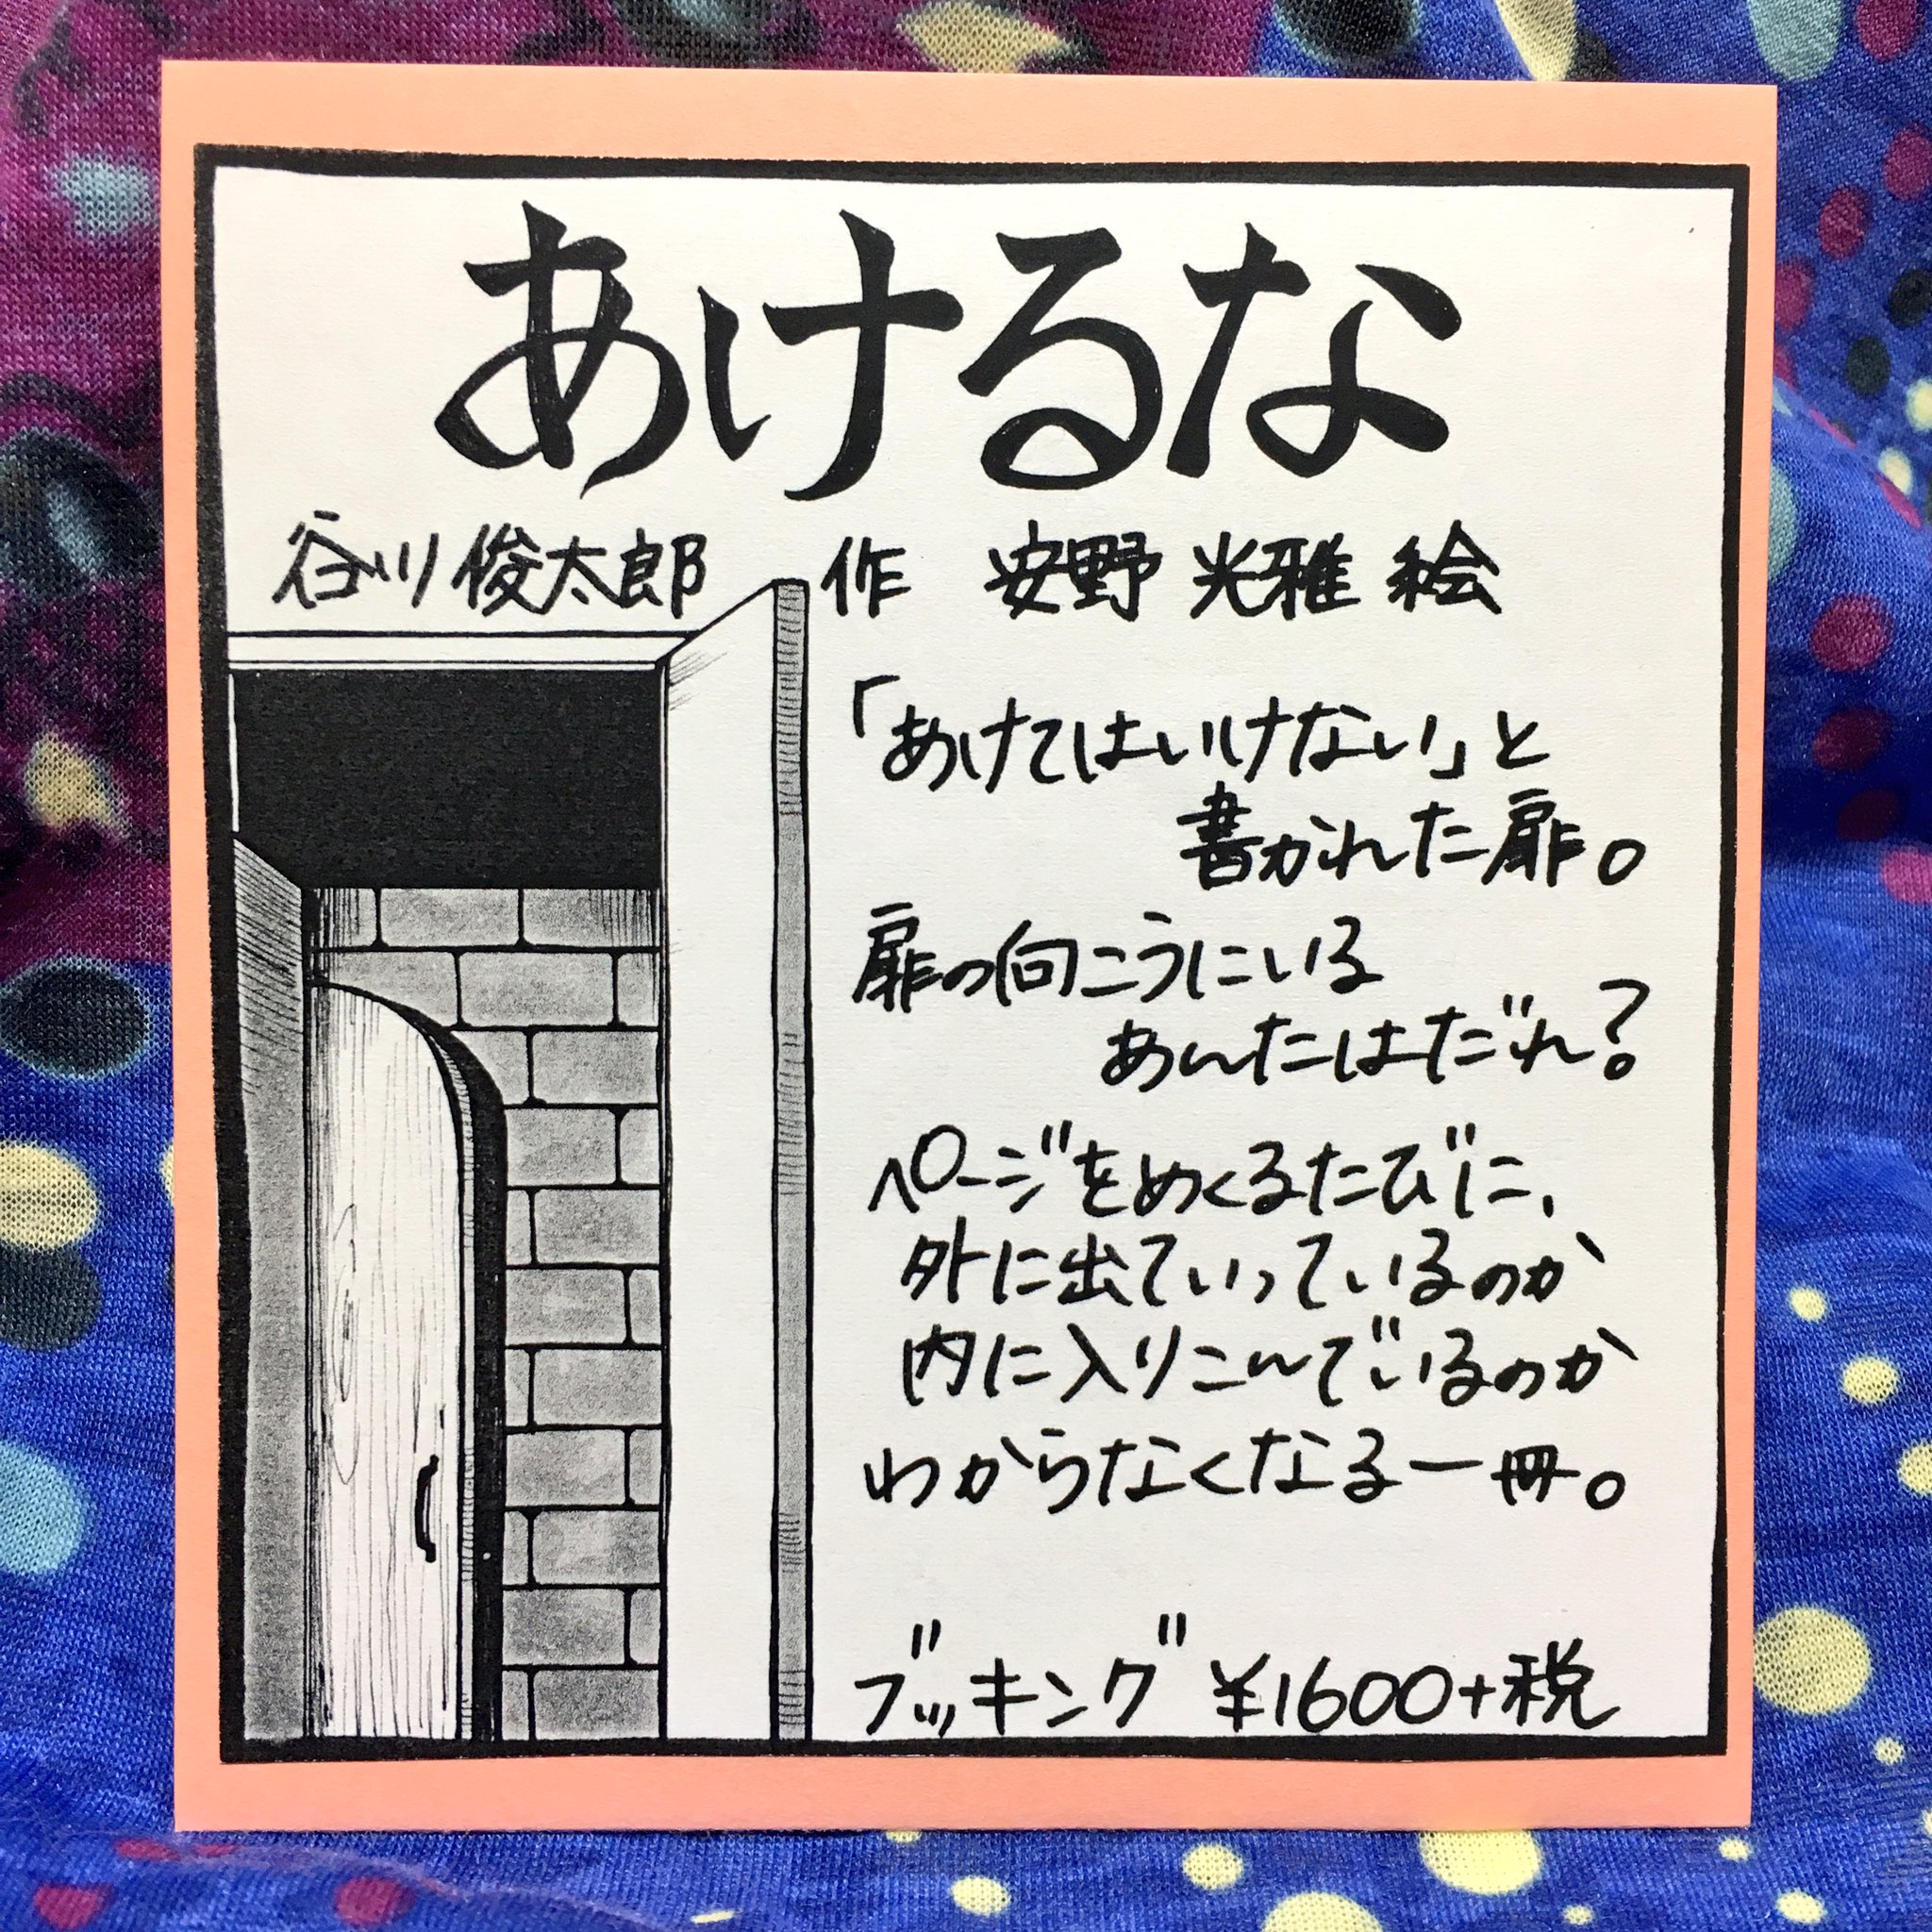 あけるな
谷川俊太郎 作 安野光雅 絵
「あけてはいけない」と
書かれた扉。
扉の向こうにいる
あんたはだれ?
ページをめくるたびに、
外に出ていっているのか
内に入りこんでいるのか
わからなくなる一冊。
ブッキング ¥1600+税